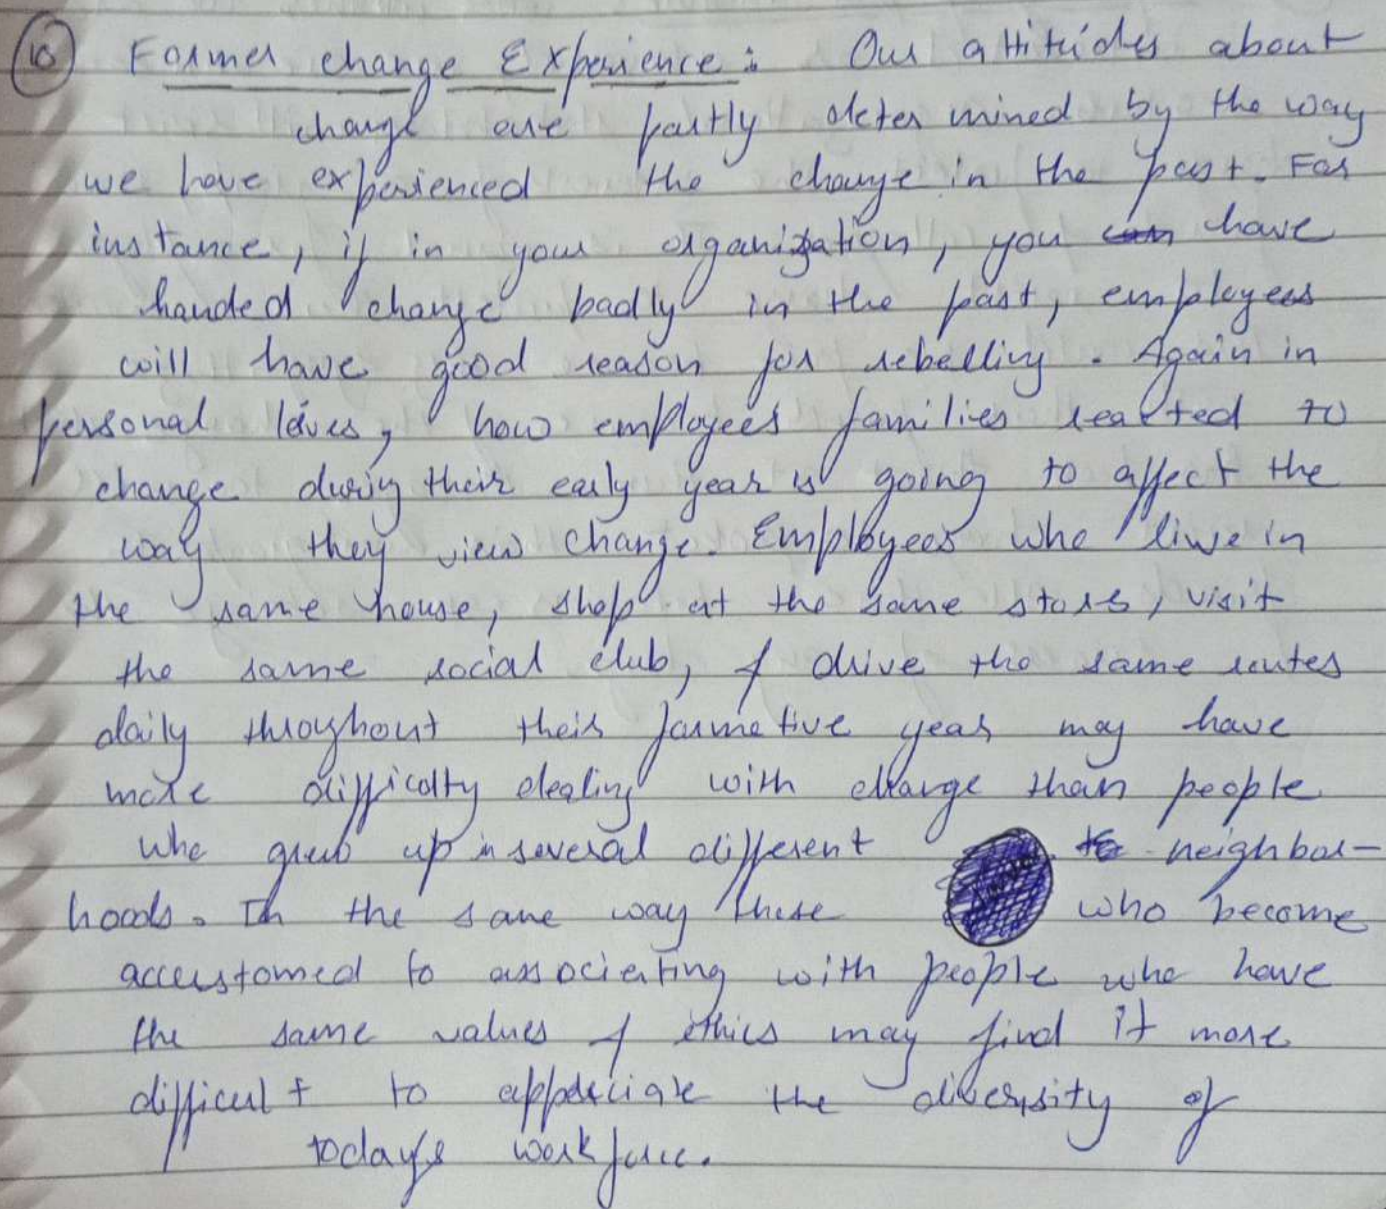 10 Former change Experience : Our attitudes about
change are partly determined by the way
we have experienced the change in the past. For
instance, if in your organization, you have
handed change badly in the past, employees
will have good reason for rebelling. Again in
personal lives, how employees families reacted to
change during their early year is going to affect the
way they view change. Employees who live in
the same house, shop at the same stores, visit
the same social club, & drive the same routes
daily throughout their formative years may have
more difficulty dealing with change than people
who grew up in several different neighbor-
hoods. In the same way these who become
accustomed to associating with people who have
the same values & ethics may find it more
difficult to appreciate the diversity of
today's workforce.